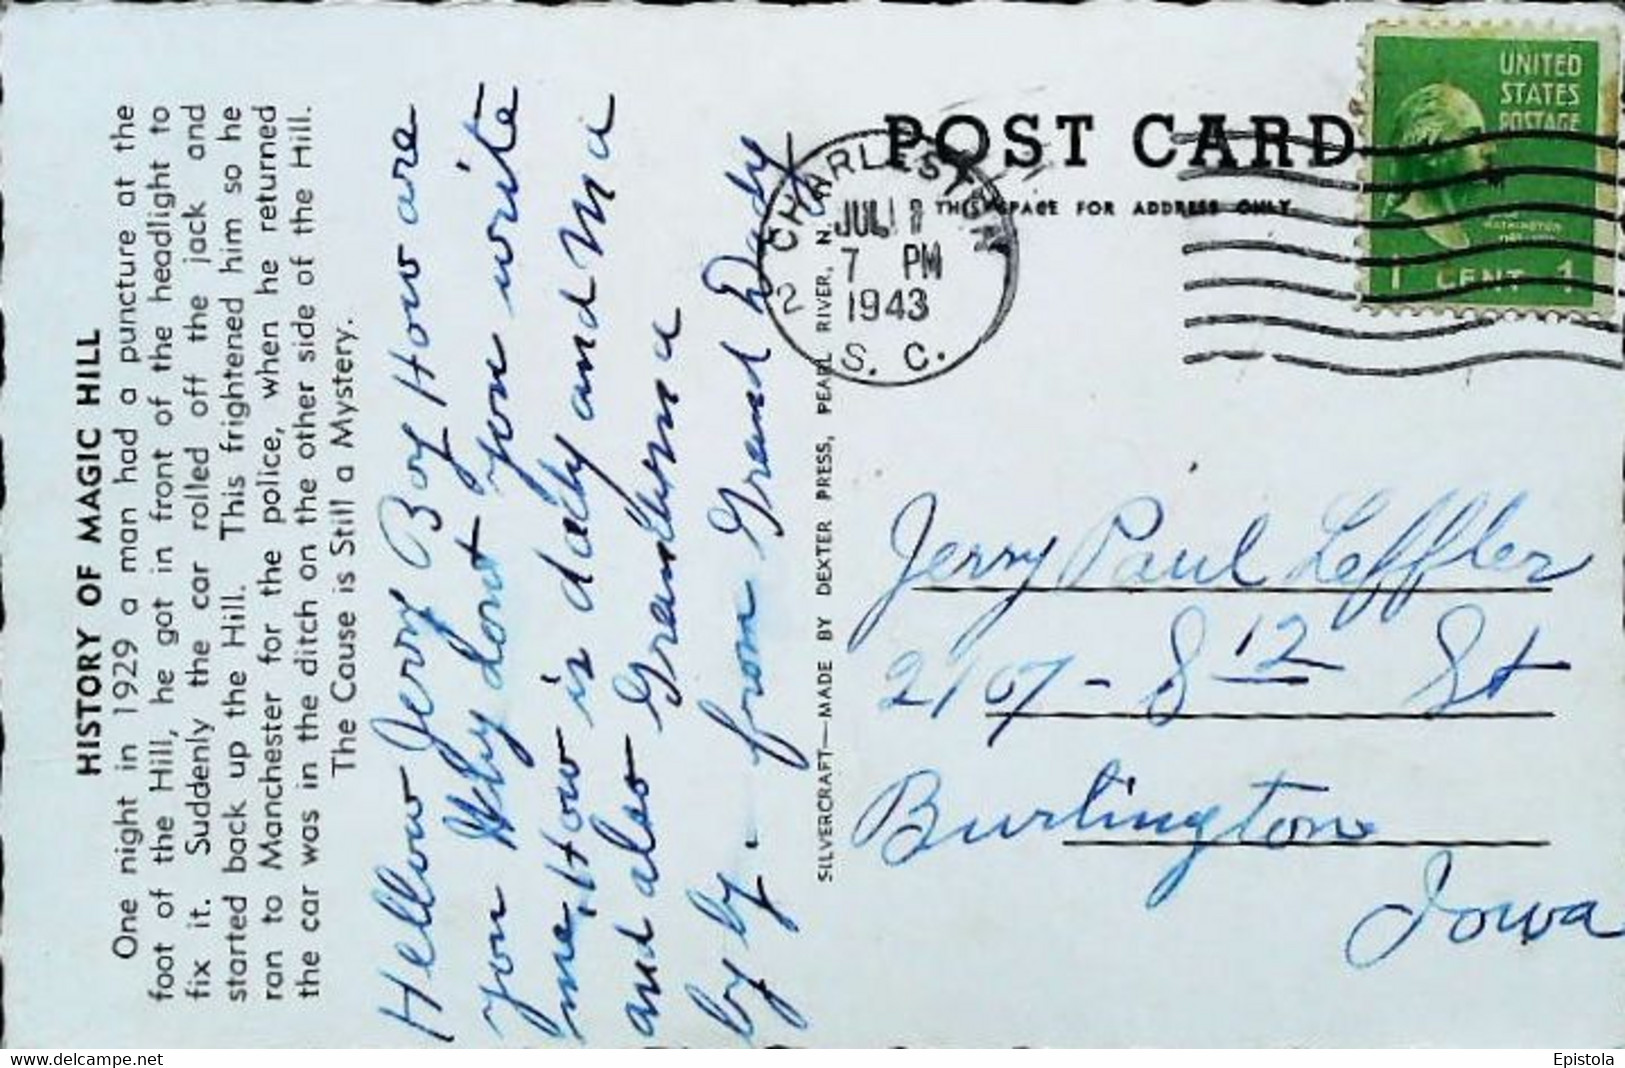 HISTORY OF MAGIC HILL
One night in 1929 a man had a puncture at the
foot of the Hill, he got in front of the headlight to
fix it. Suddenly the car rolled off the jack and
started back up the Hill. This frightened him so he
ran to Manchester for the police, when he returned
the car was in the ditch on the other side of the Hill.
The Cause is Still a Mystery.
Hellow Jerry Boy How are
you Why dont you write
me, How is daddy and Ma
and also Grandma
by by. from Grand Dady
SILVERCRAFT—MADE BY DEXTER PRESS, PEARL RIVER, N.
POST CARD
THIS SPACE FOR ADDRESS ONLY
CHARLEST
2
JUL
7 PM
1943
S. C.
UNITED
STATES
POSTAGE
WASHINGTON
1 CENT 1
Jerry Paul Leffler
2107 - S 12 St
Burlington
Iowa
www.delcampe.net
Epistola